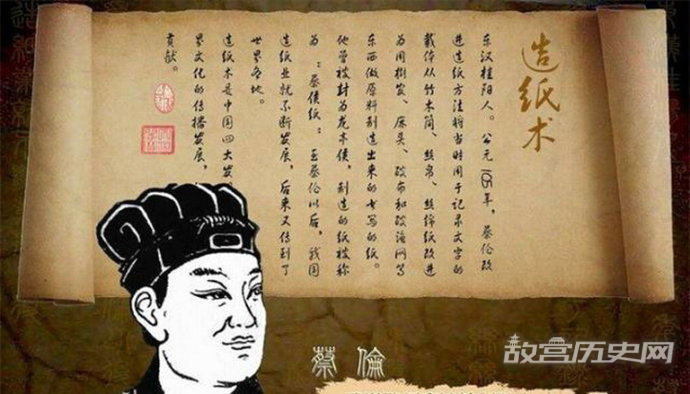 造纸术
东汉桂阳人。公元105年，蔡伦改
进造纸方法将当时用于记录文字的
载体从竹木简、丝帛、丝绵纸改进
为用树皮、麻头、破布和破渔网等
东西做原料制造出来的书写的纸。
他曾被封为龙亭侯，制造的纸被称
为：蔡侯纸：至蔡伦以后，我国
造纸业就不断发展，后来又传到了
世界各地。
造纸术是中国四大发
界文化的传播发展，
贡献。
蔡倫
故宫历史网